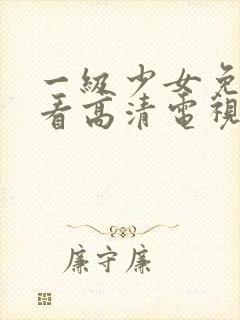 一級少女免
看高清電視
廉守廉